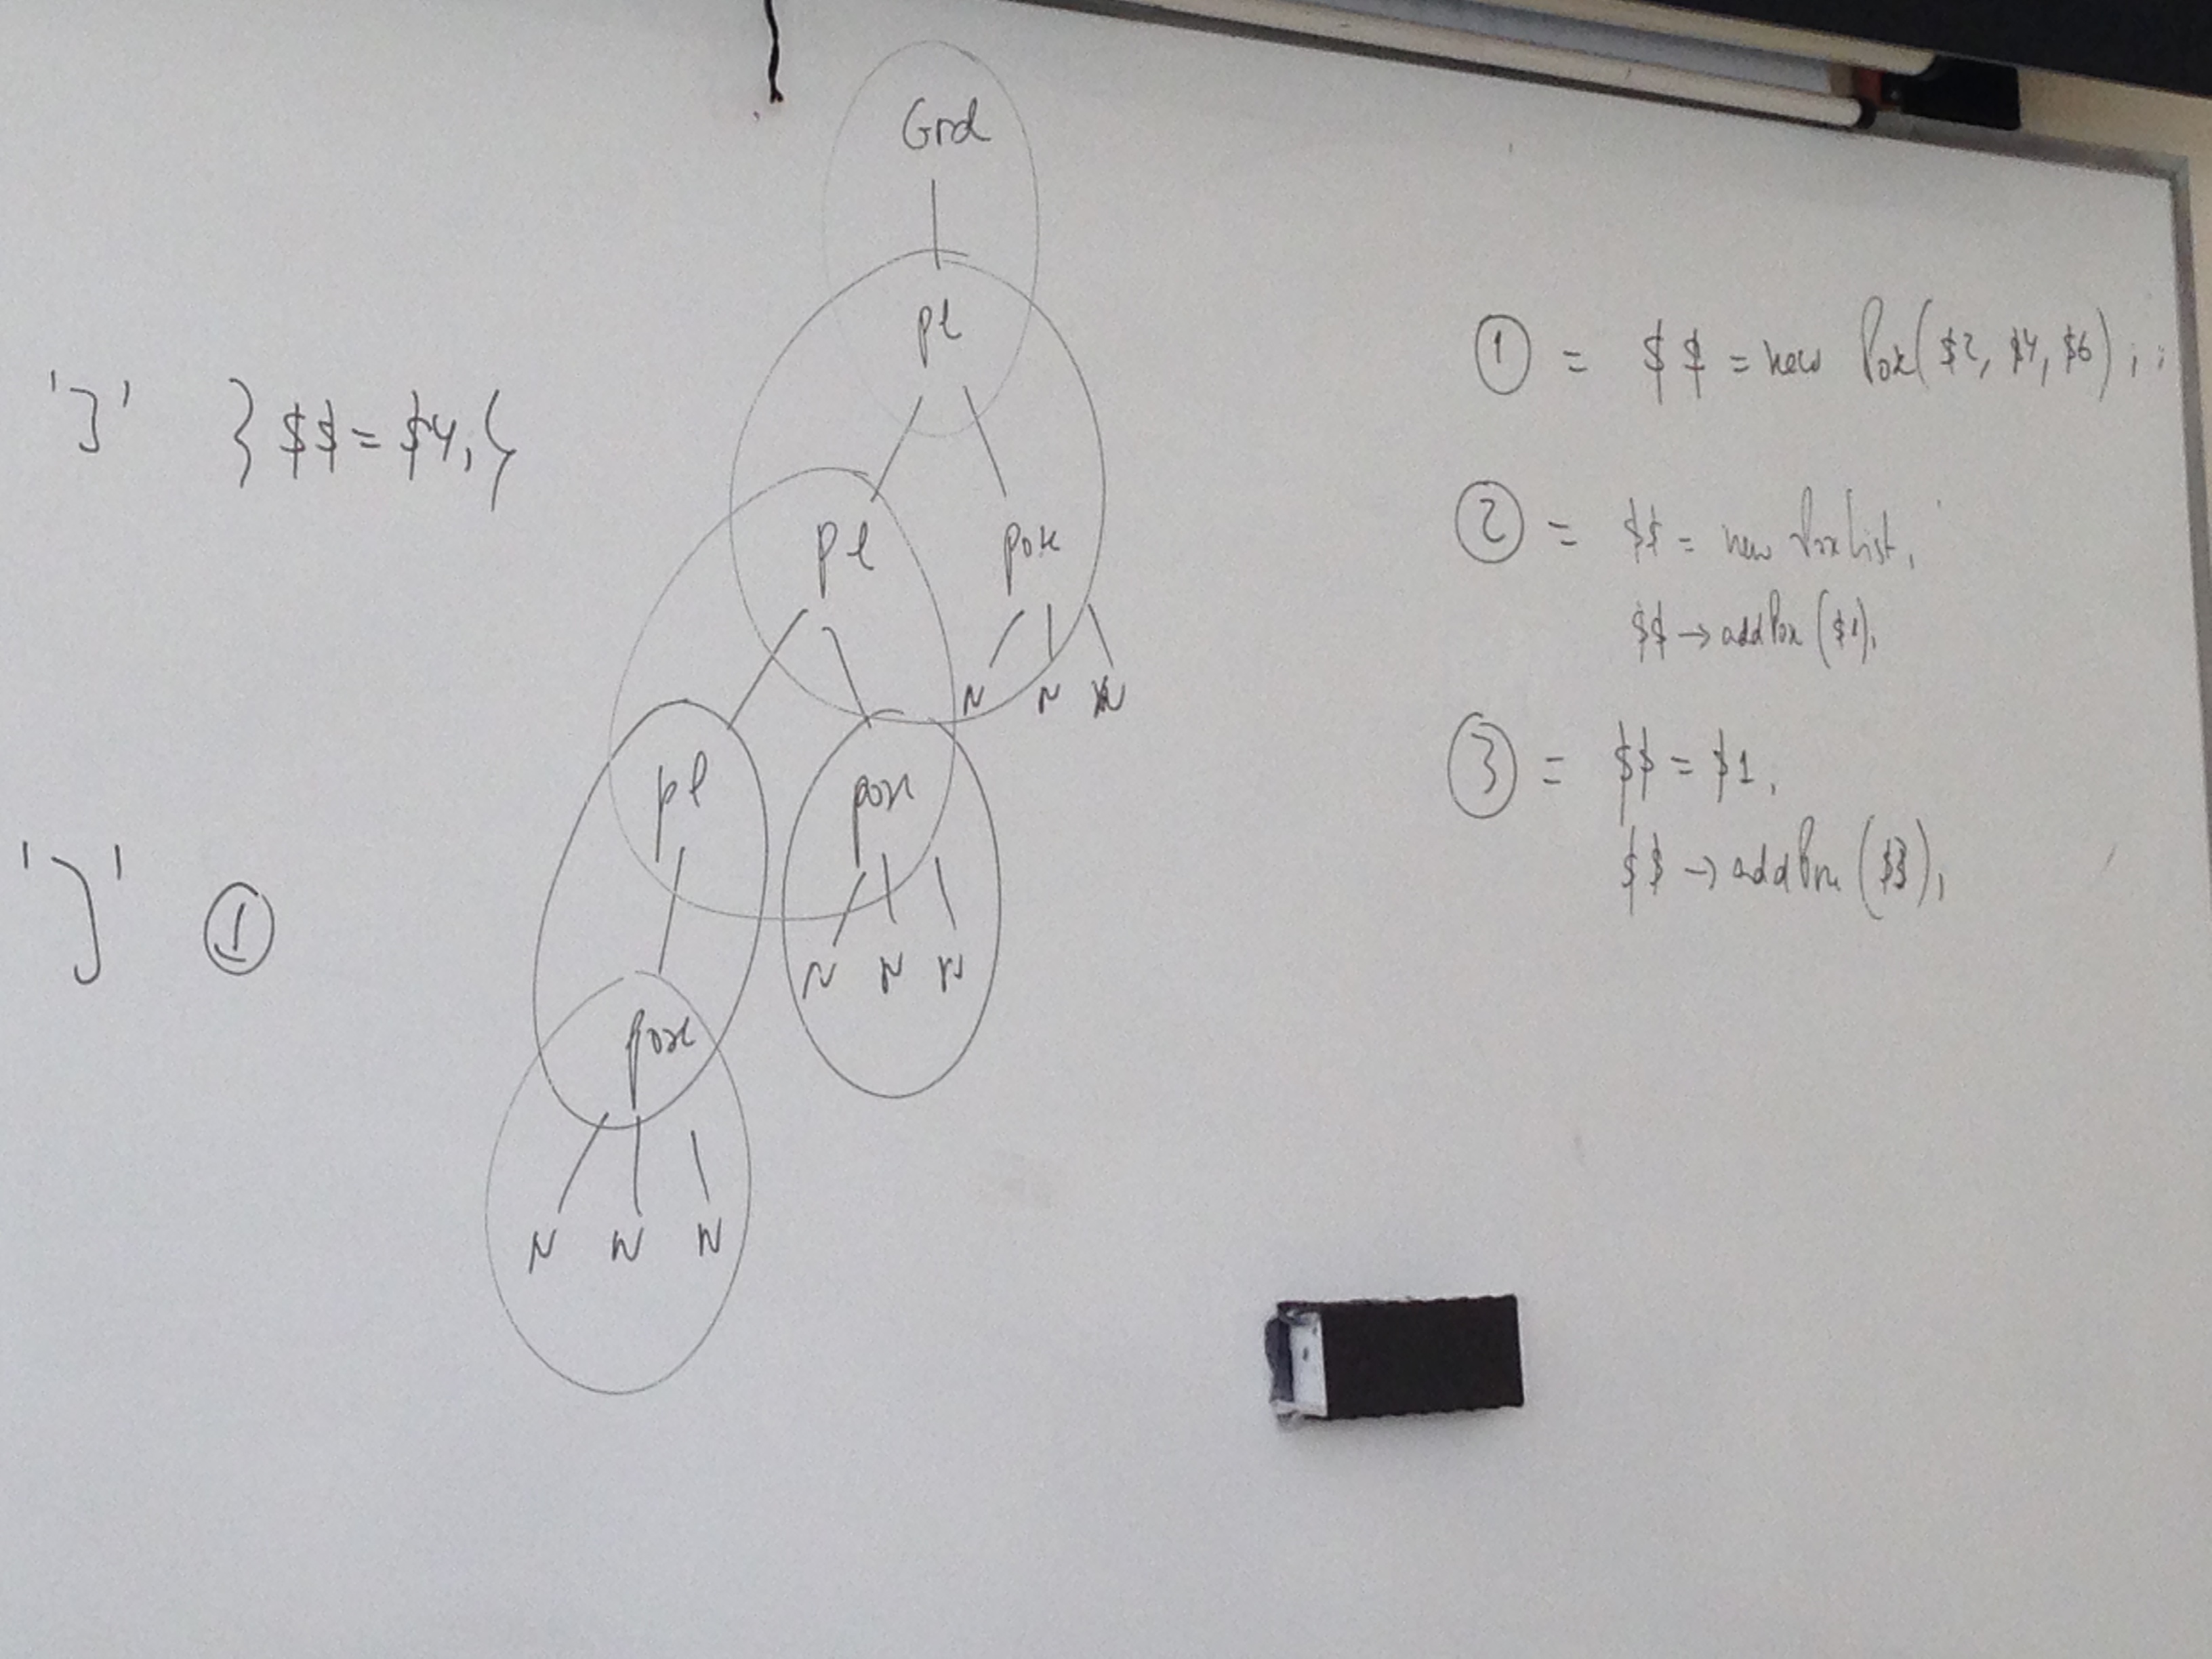 Grd
pl
']' } $$ = $4, {
pl pox
N N N
pl pox
N N N
']' ①
pox
N N N
① = $$ = new Pox($2, $4, $6); ;
② = $$ = new PoxList,
$$ → addPox ($1),
③ = $$ = $1,
$$ → addPox ($3),